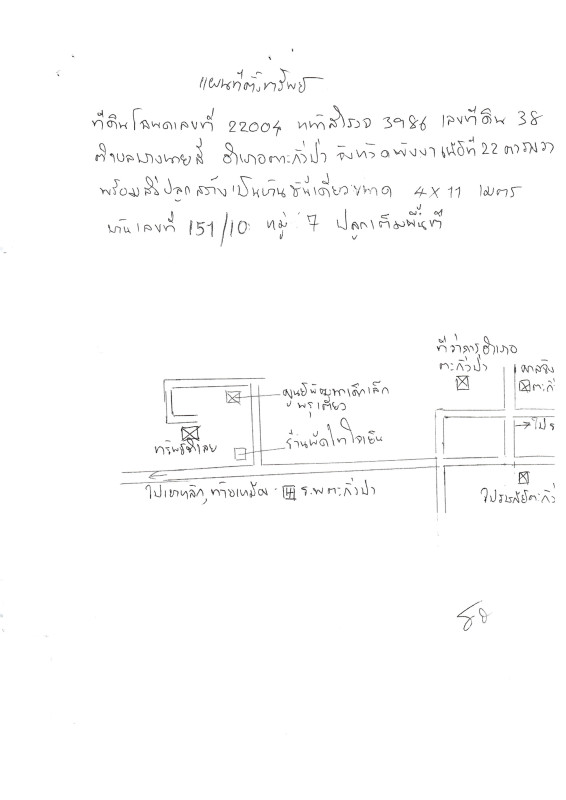 แผนที่ตั้งทรัพย์
ที่ดินโฉนดเลขที่ 22004 หน้าสำรวจ 3986 เลขที่ดิน 38
ตำบลบางนายสี อำเภอตะกั่วป่า จังหวัดพังงา เนื้อที่ 22 ตารางวา
พร้อมสิ่งปลูกสร้างเป็นบ้านชั้นเดียวขนาด 4 x 11 เมตร
บ้านเลขที่ 151/10 หมู่ 7 ปลูกเต็มพื้นที่
ที่ว่าการอำเภอ
ตะกั่วป่า
ศูนย์พัฒนาเด็กเล็ก
พรุเตียว
ร้านผัดไทใจเย็น
ไปเขาหลัก, ท้ายเหมือง
ร.พ ตะกั่วป่า